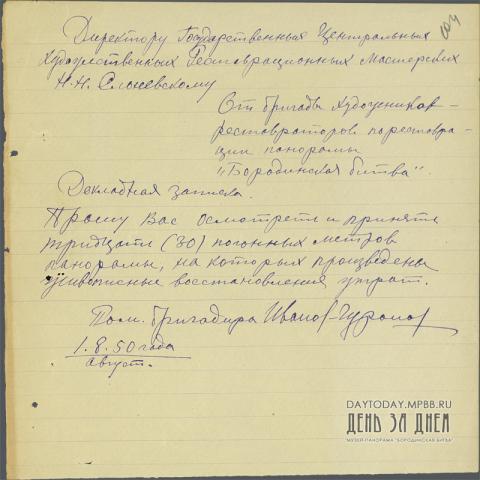 104
Директору Государственных Центральных
Художественных Реставрационных Мастерских
Н.Н. Слоневскому
От бригады Художников –
реставраторов по реставра-
ции панорамы
"Бородинская битва".
Докладная записка.
Прошу Вас осмотреть и принять
тридцать (30) погонных метров
панорамы, на которых произведены
живописные восстановления утрат.
Пом. бригадира Иванов-Чуронов
1.8.50 года
август.
DAYTODAY.MPBB.RU
ДЕНЬ ЗА ДНЕМ
МУЗЕЙ-ПАНОРАМА "БОРОДИНСКАЯ БИТВА"